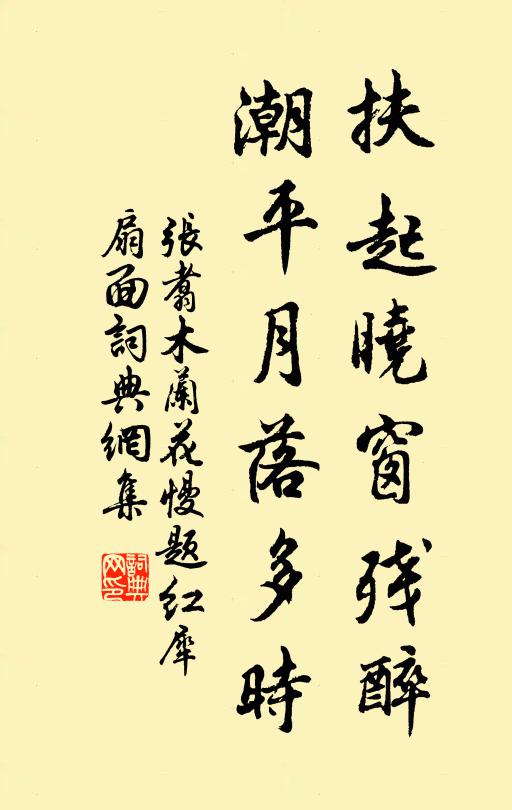 扶起曉窗残醉
潮平月落多時
張翥木蘭花慢题红犀
扇面詞典網集
詞典网印